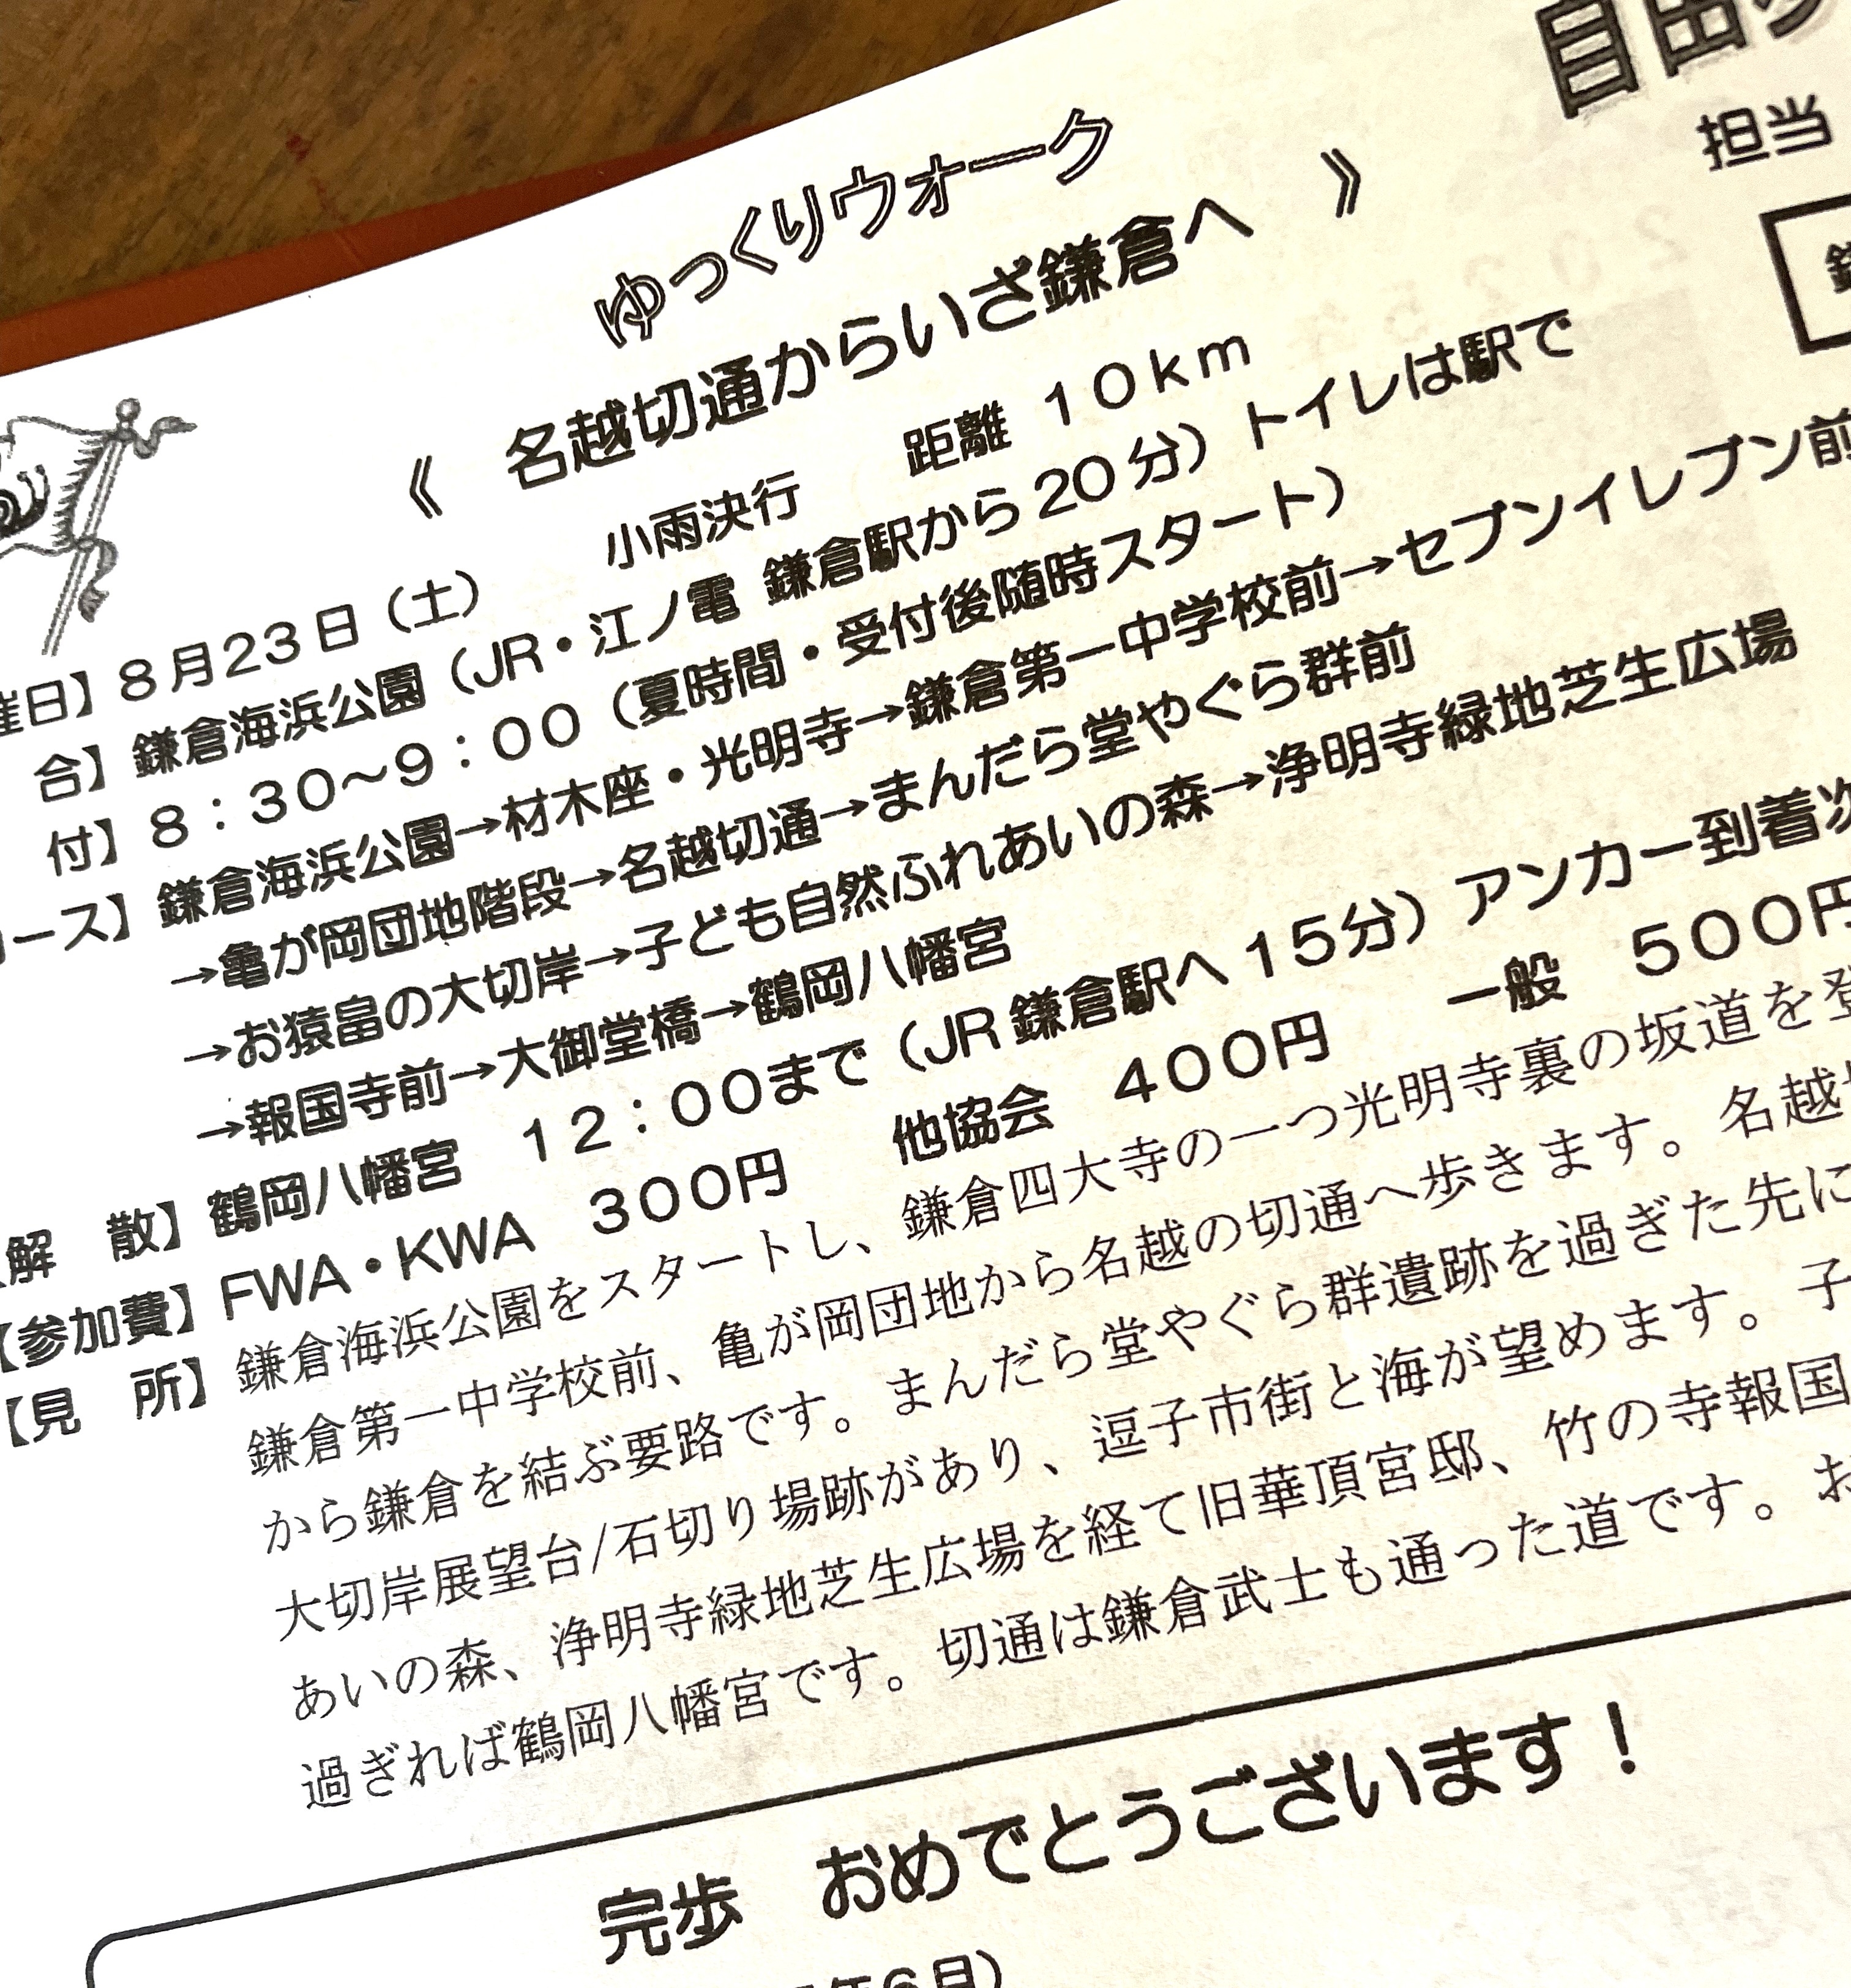 ゆっくりウォーク
《 名越切通からいざ鎌倉へ 》
小雨決行 距離 10km
催日】8月23日（土）
合】鎌倉海浜公園（JR・江ノ電 鎌倉駅から20分）トイレは駅で
付】8：30〜9：00（夏時間・受付後随時スタート）
ース】鎌倉海浜公園→材木座・光明寺→鎌倉第一中学校前→セブンイレブン前
→亀が岡団地階段→名越切通→まんだら堂やぐら群前
→お猿畠の大切岸→子ども自然ふれあいの森→浄明寺緑地芝生広場
→報国寺前→大御堂橋→鶴岡八幡宮
解 散】鶴岡八幡宮 12：00まで（JR鎌倉駅へ15分）アンカー到着次
【参加費】FWA・KWA 300円 他協会 400円 一般 500円
【見 所】鎌倉海浜公園をスタートし、鎌倉四大寺の一つ光明寺裏の坂道を登
鎌倉第一中学校前、亀が岡団地から名越の切通へ歩きます。名越
から鎌倉を結ぶ要路です。まんだら堂やぐら群遺跡を過ぎた先に
大切岸展望台/石切り場跡があり、逗子市街と海が望めます。子
あいの森、浄明寺緑地芝生広場を経て旧華頂宮邸、竹の寺報国
過ぎれば鶴岡八幡宮です。切通は鎌倉武士も通った道です。お
完歩 おめでとうございます！
年6月）
自由
担当